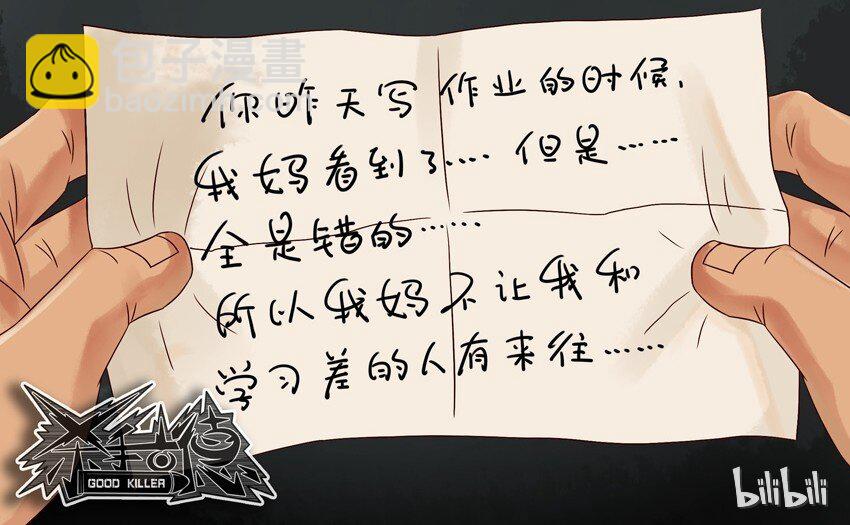 包子漫畫
baozimh.com
你昨天写作业的时候，
我妈看到了…… 但是……
全是错的……
所以我妈不让我和
学习差的人有来往……
杀手古德
GOOD KILLER
bilibili